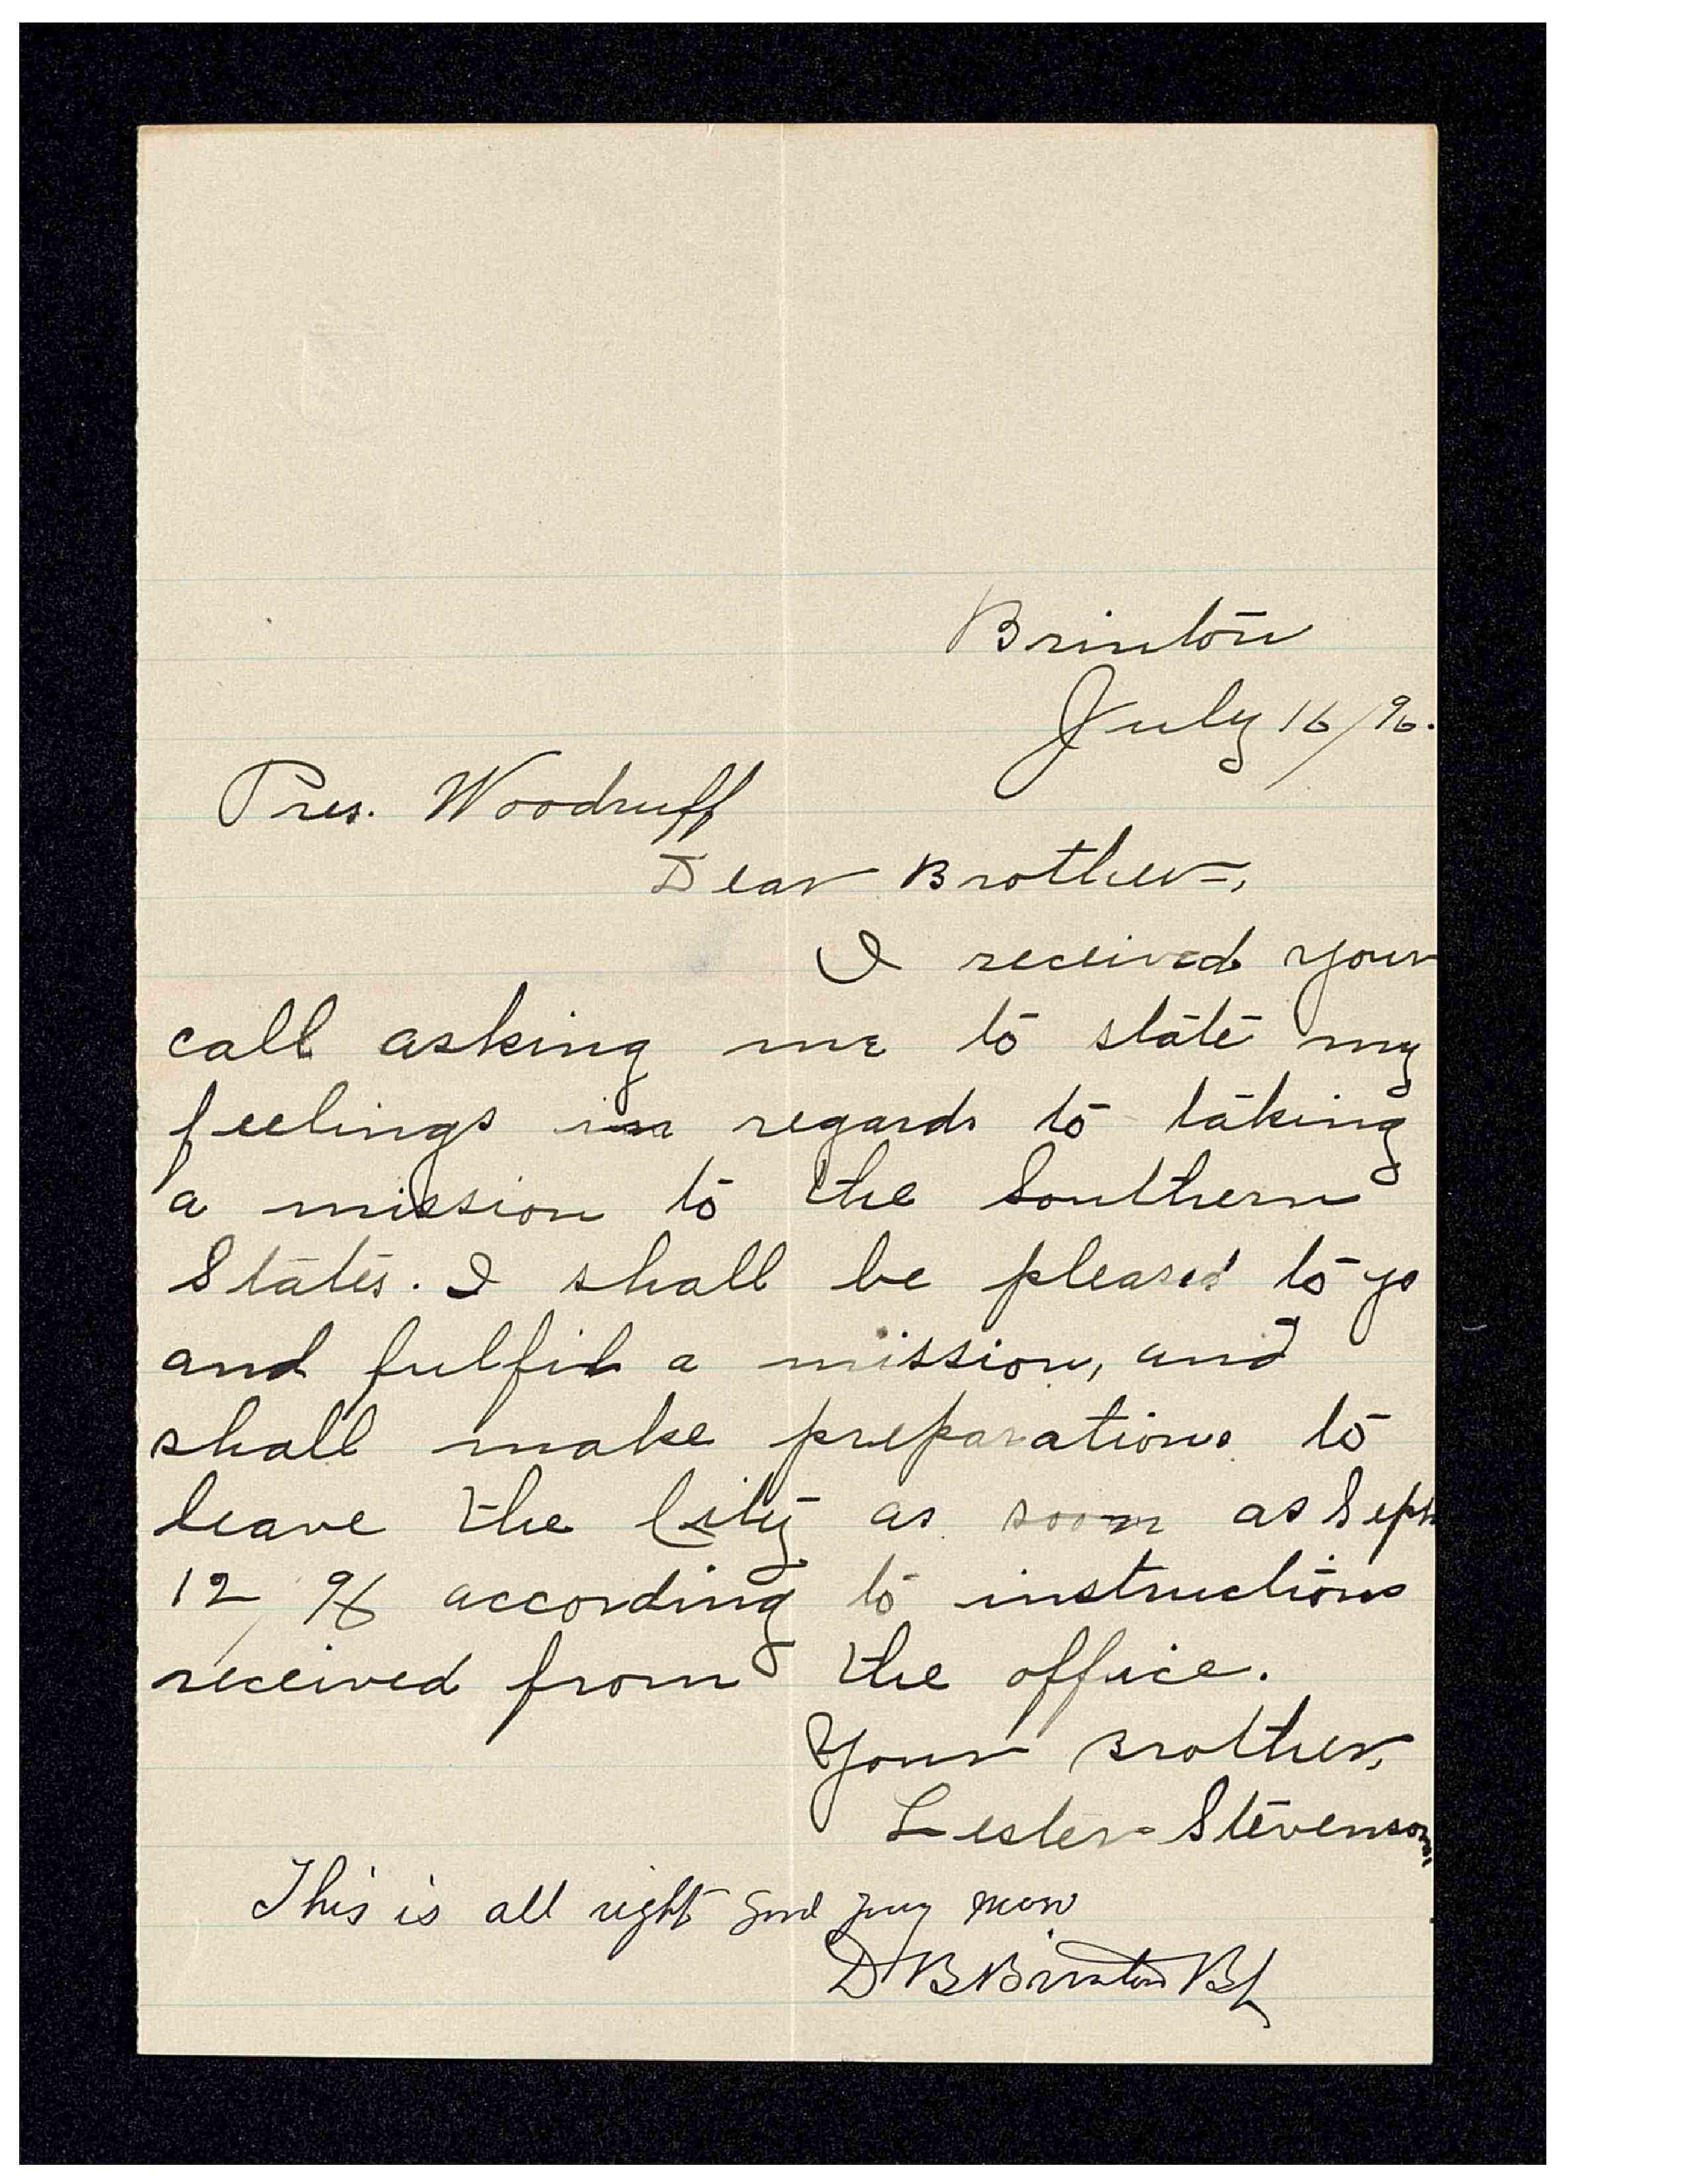 Brinton
July 16/96.
Pres. Woodruff
Dear Brother,
I received your
call asking me to state my
feelings in regards to taking
a mission to the Southern
States. I shall be pleased to go
and fulfil a mission, and
shall make preparations to
leave the City as soon as Sept
12/96 according to instructions
received from the office.
Your Brother,
Lester Stevenson,
This is all right good young man
D B Brinton Bp